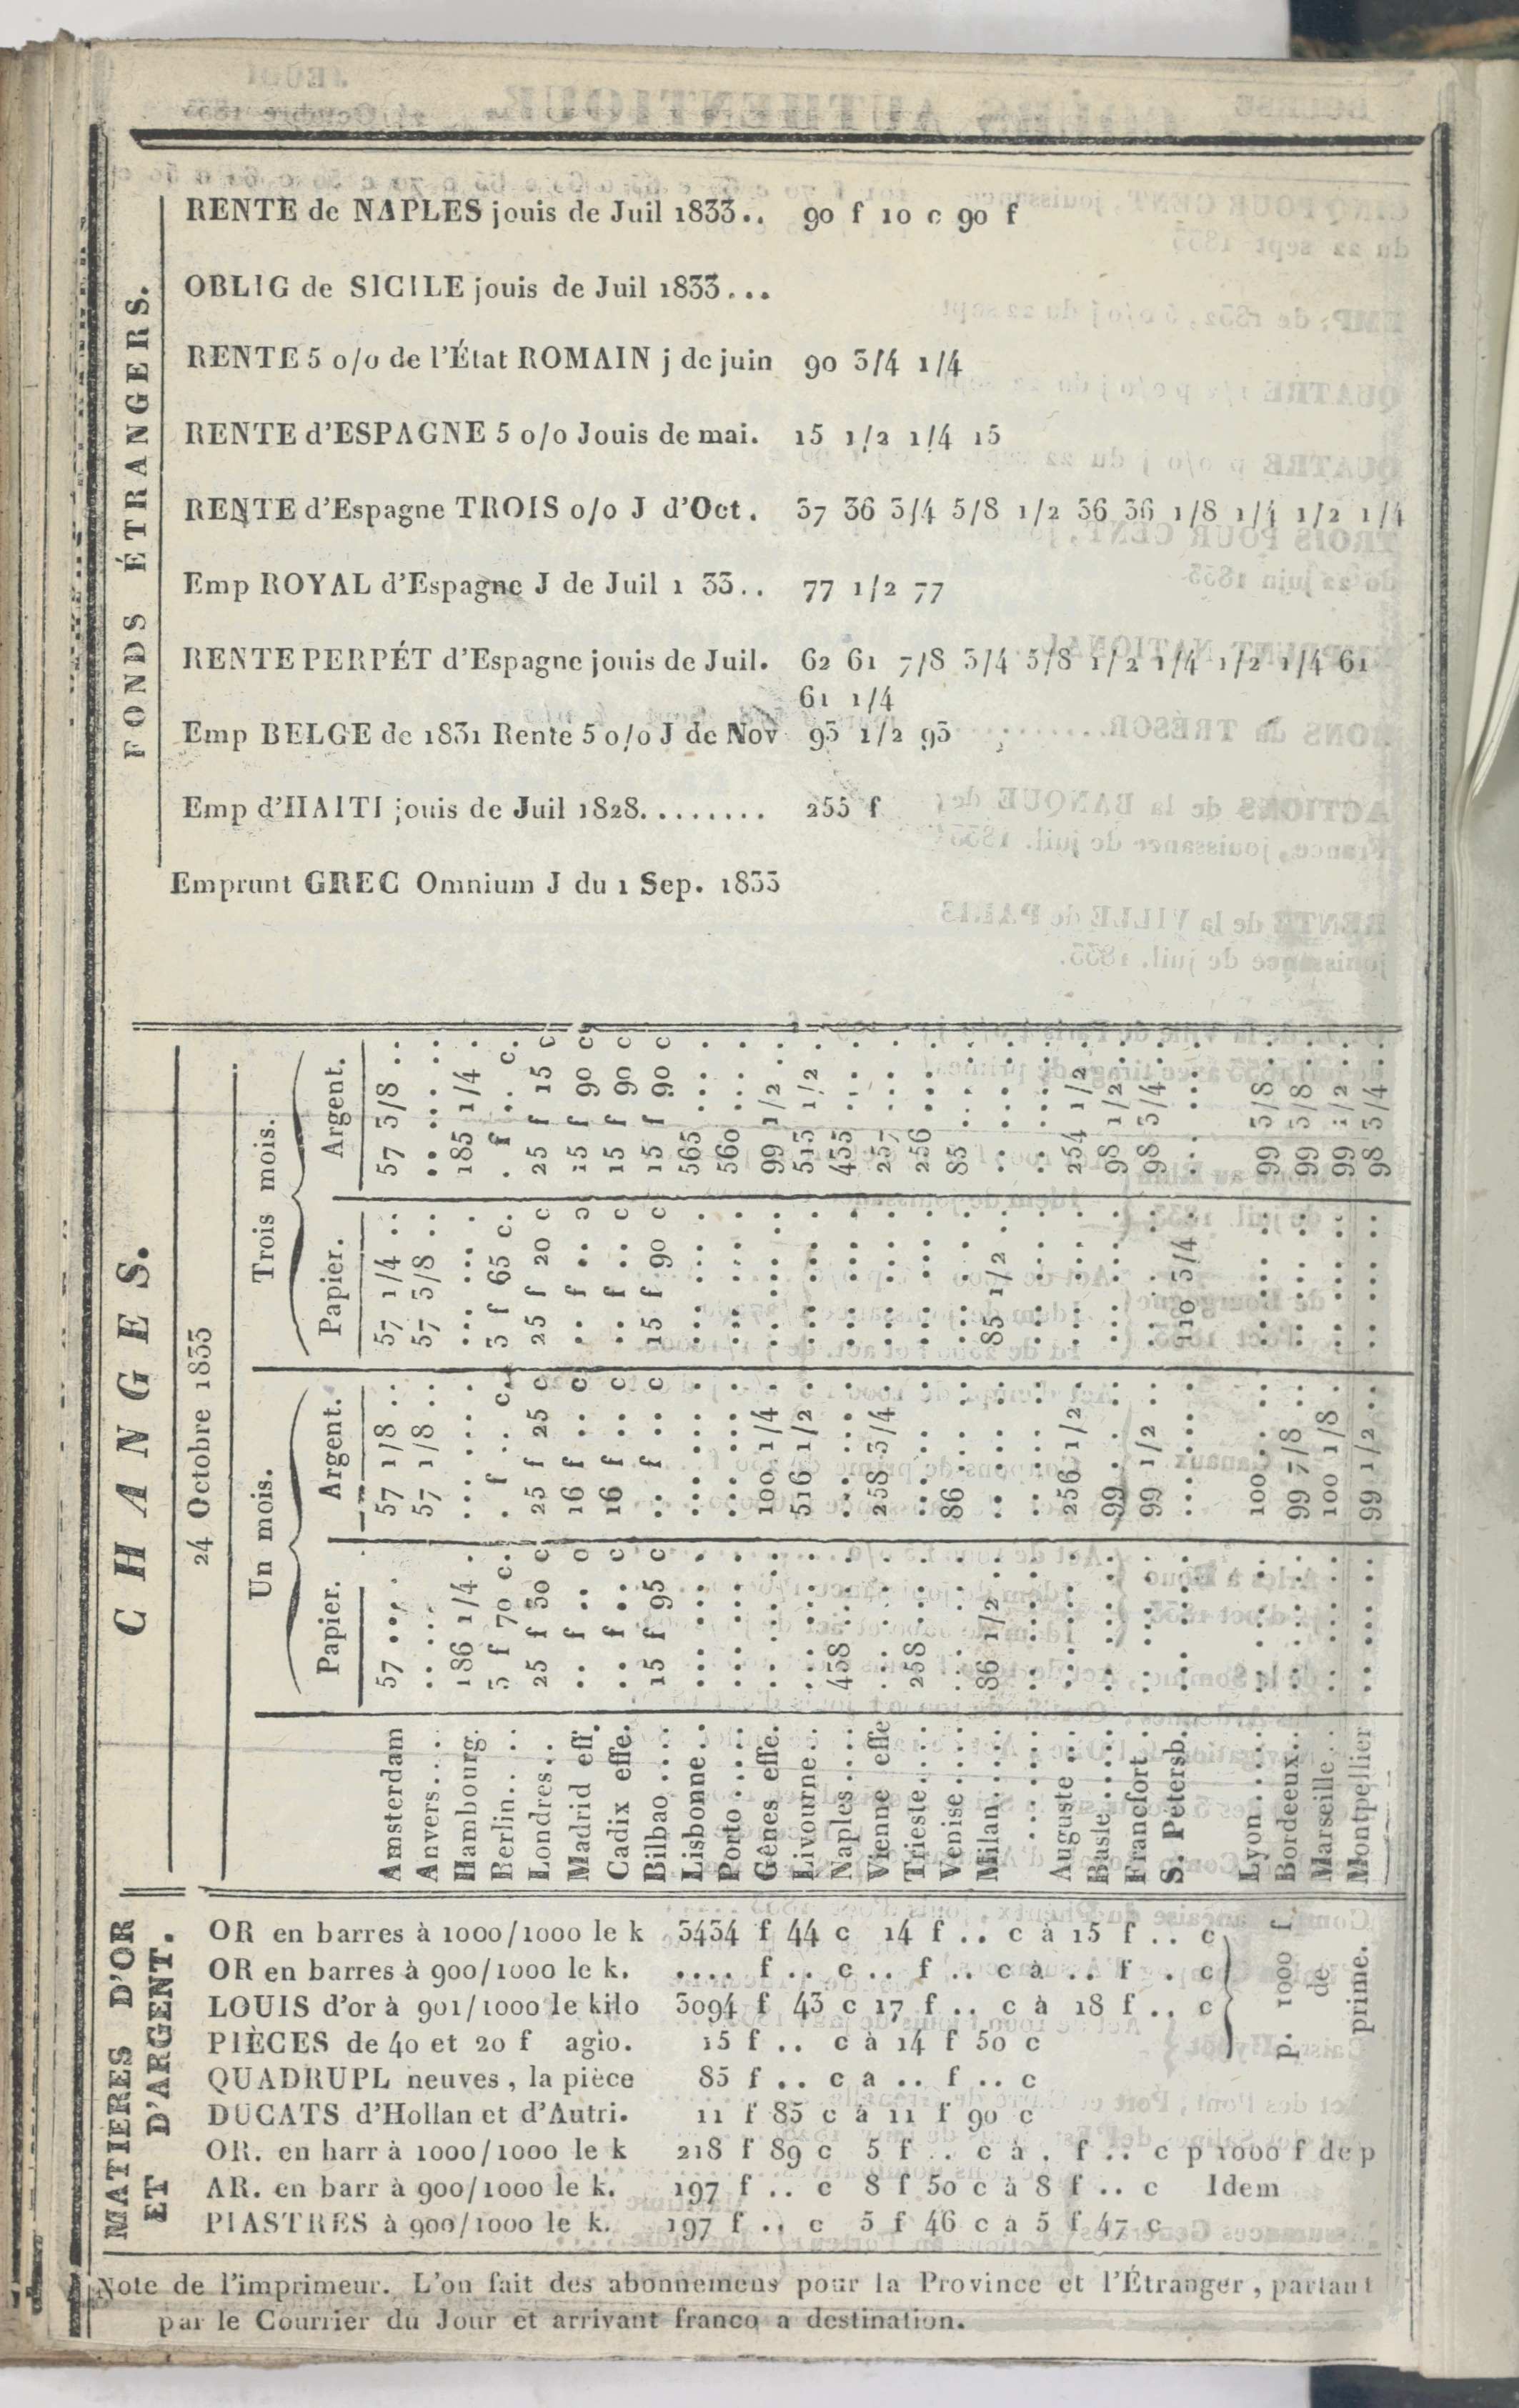 FONDS ÉTRANGERS.
RENTE de NAPLES jouis de Juil 1833.. 90 f 10 c 90 f
OBLIG de SICILE jouis de Juil 1833...
RENTE 5 o/o de l'État ROMAIN j de juin 90 3/4 1/4
RENTE d'ESPAGNE 5 o/o Jouis de mai. 15 1/2 1/4 15
RENTE d'Espagne TROIS o/o J d'Oct. 37 36 3/4 5/8 1/2 36 36 1/8 1/4 1/2 1/4
Emp ROYAL d'Espagne J de Juil 1 33.. 77 1/2 77
RENTE PERPÉT d'Espagne jouis de Juil. 62 61 7/8 3/4 5/8 1/2 1/4 1/2 1/4 61
61 1/4
Emp BELGE de 1831 Rente 5 o/o J de Nov 93 1/2 93
Emp d'HAITI jouis de Juil 1828........ 255 f
Emprunt GREC Omnium J du 1 Sep. 1833
CHANGES.
24 Octobre 1833
Un mois. Trois mois.
Papier. Argent. Papier. Argent.
Amsterdam 57 .... 57 1/8 .. 57 1/4 .. 57 3/8 ..
Anvers.... ..... 57 1/8 .. 57 3/8 .. .....
Hambourg. 186 1/4 . ..... 185 1/4 .
Berlin.... 3 f 70 c. . f .. c. 3 f 65 c. . f .. c.
Londres... 25 f 30 c 25 f 25 c 25 f 20 c 25 f 15 c
Madrid eff. .. f .. c 16 f .. c .. f .. c 15 f 90 c
Cadix effe. .. f .. c 16 f .. c .. f .. c 15 f 90 c
Bilbao .... 15 f 95 c .. f .. c 15 f 90 c 15 f 90 c
Lisbonne .. ..... ..... ..... 565 ....
Porto ..... ..... ..... ..... 560 ....
Gênes effe. ..... 100 1/4 . ..... 99 1/2 ..
Livourne .. ..... 516 1/2 . ..... 513 1/2 .
Naples..... 458 .... ..... ..... 455 ....
Vienne effe ..... 258 3/4 . ..... 257 ....
Trieste.... 258 .... ..... ..... 256 ....
Venise..... ..... 86 .... ..... 85 ....
Milan..... 86 1/2 .. ..... 85 1/2 .. .....
.....
Auguste ... ..... 256 1/2 . ..... 254 1/2 .
Basle ..... ..... 99 .... ..... 98 1/2 ..
Francfort . ..... 99 1/2 .. ..... 98 3/4 ..
S. Petersb. ..... ..... 110 3/4 . .....
Lyon ..... ..... 100 .... ..... 99 3/8 ..
Bordeeux.. ..... 99 7/8 .. ..... 99 3/8 ..
Marseille .. ..... 100 1/8 . ..... 99 1/2 ..
Montpellier ..... 99 1/2 .. ..... 98 3/4 ..
MATIERES D'OR
ET D'ARGENT.
OR en barres à 1000/1000 le k 3434 f 44 c 14 f .. c à 15 f .. c
OR en barres à 900/1000 le k. .... f .. c .. f .. c à .. f . c
LOUIS d'or à 901/1000 le kilo 3094 f 43 c 17 f .. c à 18 f .. c
p. 1000 f.
de
prime.
PIÈCES de 40 et 20 f agio. 15 f .. c à 14 f 50 c
QUADRUPL neuves, la pièce 83 f .. c a .. f .. c
DUCATS d'Hollan et d'Autri. 11 f 85 c à 11 f 90 c
OR. en harr à 1000/1000 le k 218 f 89 c 5 f .. c à . f .. c p 1000 f de p
AR. en barr à 900/1000 le k. 197 f .. c 8 f 50 c à 8 f .. c Idem
PIASTRES à 900/1000 le k. 197 f .. c 5 f 46 c à 5 f 47 c
Note de l'imprimeur. L'on fait des abonnemens pour la Province et l'Étranger, partant
par le Courrier du Jour et arrivant franco a destination.